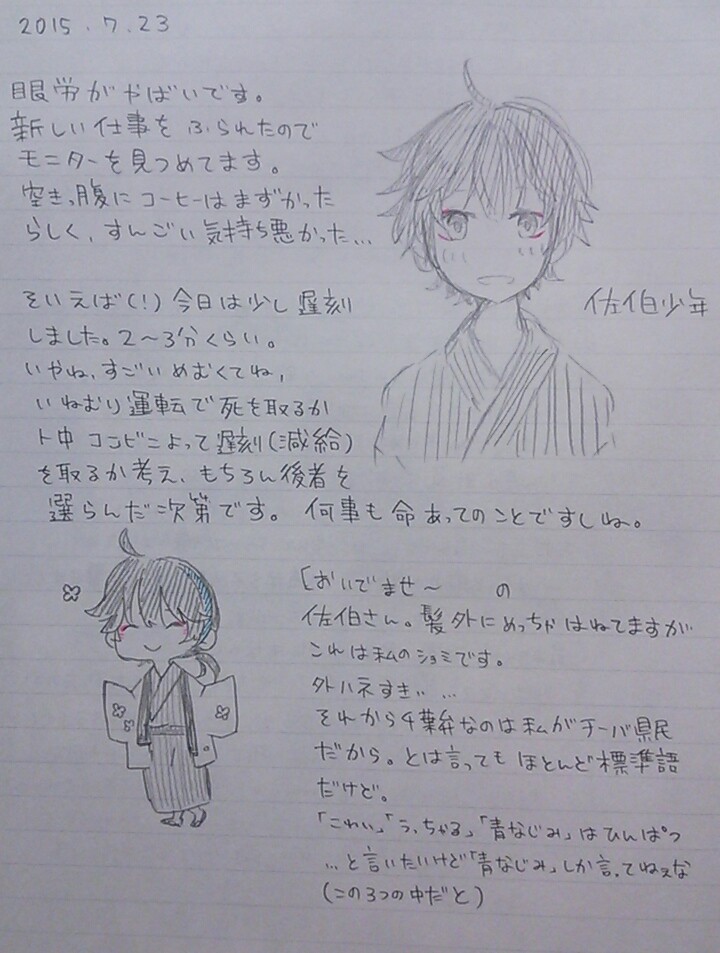 2015.7.23
眼労がやばいです。
新しい仕事をふられたので
モニターを見つめてます。
空きっ腹にコーヒーはまずかった
らしく、すんごい気持ち悪かった…
そいえば(!)今日は少し遅刻
しました。2〜3分くらい。
いやね、すごいねむくてね、
いねむり運転で死を取るか
ト中コンビニよって遅刻(減給)
を取るか考え、もちろん後者を
選らんだ次第です。何事も命あってのことですしね。
佐伯少年
「おいでませ〜 の
佐伯さん。髪外にめっちゃはねてますが
これは私のショミです。
外ハネすき。…
それから千葉弁なのは私がチーバ県民
だから。とは言ってもほとんど標準語
だけど。
「こわい」「うっちゃる」「青なじみ」はひんぱつ
…と言いたいけど「青なじみ」しか言ってねぇな
(この3つの中だと)